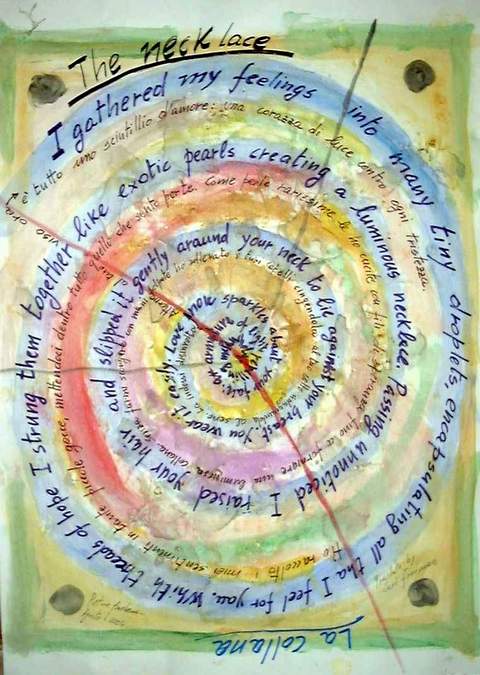 The necklace
I gathered my feelings into many tiny droplets, encapsulating all tha I feel for you. Whith threads of hope I strung them together like exotic pearls creating a luminous necklace. Passing unnoticed I raised your hair and slipped it gently around your neck to lie against your breast. You wear it easily. Love now sparkles about
La collana
Ho raccolto i miei sentimenti in tante piccole gocce, mettendoci dentro tutto quello che sento per te. Come perle rarissime le ho cucite con fili di speranza fino a formare una luminosa collana.
viso ora è tutto uno scintillio d'amore: una corazza di luce contro ogni tristezza